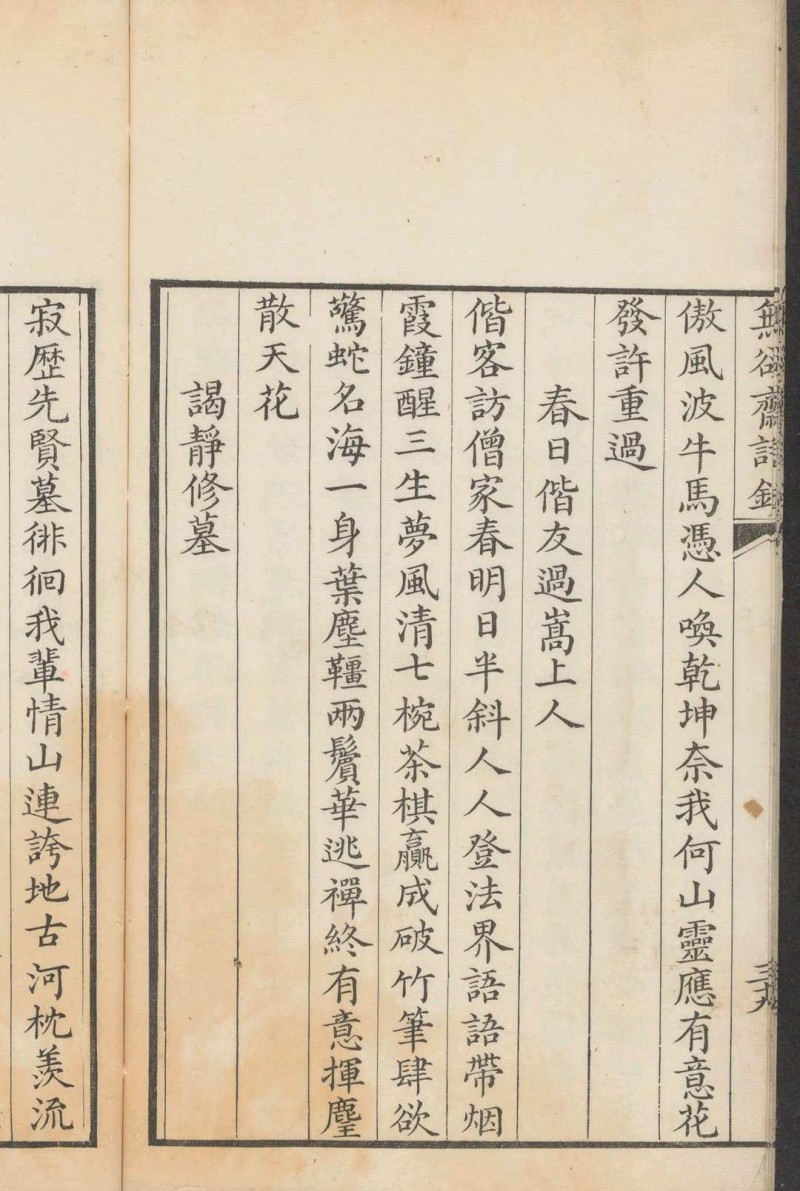 無欲齋詩鈔
三九
傲風波牛馬憑人喚乾坤奈我何山靈應有意花
發許重過
春日偕友過嵩上人
偕客訪僧家春明日半斜人人登法界語語帶烟
霞鐘醒三生夢風清七椀茶棋贏成破竹筆肆欲
驚蛇名海一身葉塵韁兩鬢華逃禪終有意揮麈
散天花
謁靜修墓
寂歷先賢墓徘徊我輩情山連誇地古河枕羨流